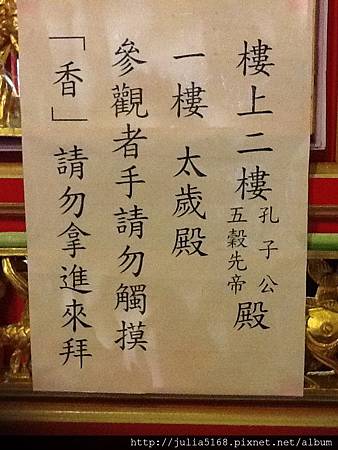 樓上二樓孔子公五穀先帝殿
一樓 太歲殿
參觀者手請勿觸摸
「香」請勿拿進來拜
http://julia5168.pixnet.net/album